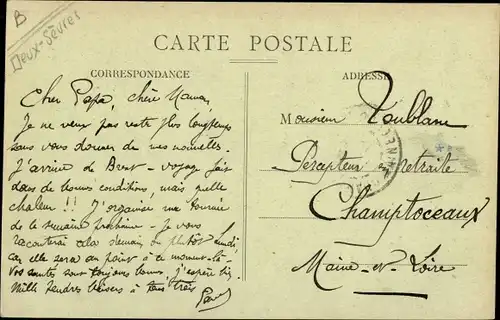 B
Deux-Sèvres
CARTE POSTALE
CORRESPONDANCE
ADRESSE
Cher Papa, chère Maman,
Je ne veux pas rester plus longtemps
sans vous donner de mes nouvelles.
J'arrive de Brest - voyage fait
dans de bonnes conditions, mais quelle
chaleur !! J'organise une tournée
de la semaine prochaine - Je vous
raconterai cela demain ou plutôt lundi
car elle sera au point à ce moment-là -
Vos santés sont toujours bonnes, j'espère
Mille tendres baisers à tous trois
Monsieur Toublanc
Percepteur retraité
Champtoceaux
Maine-et-Loire